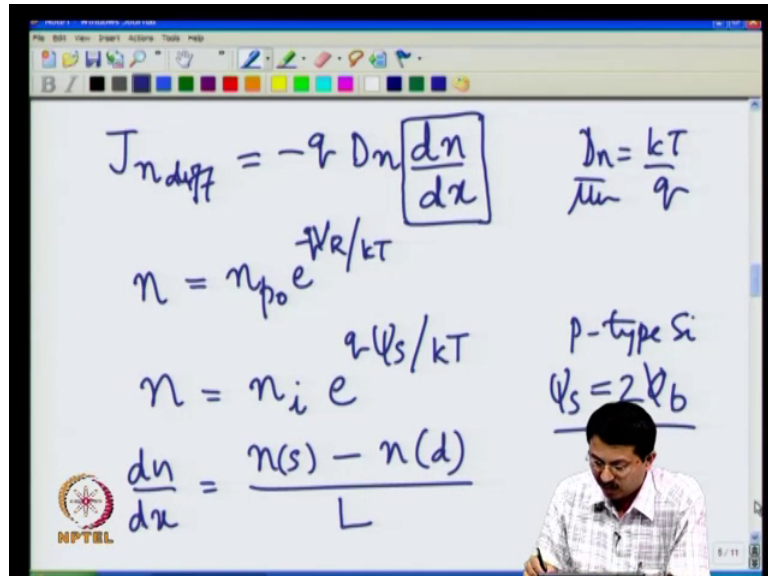 Note1 - Windows Journal
File Edit View Insert Actions Tools Help
B I
J_{n diff} = -q Dn dn/dx
Dn/μn = kT/q
n = n_{p0} e^{-qV_R/kT}
P-type Si
n = n_i e^{qψs/kT}
ψs = 2ψb
dn/dx = n(s) - n(d) / L
NPTEL
5/11